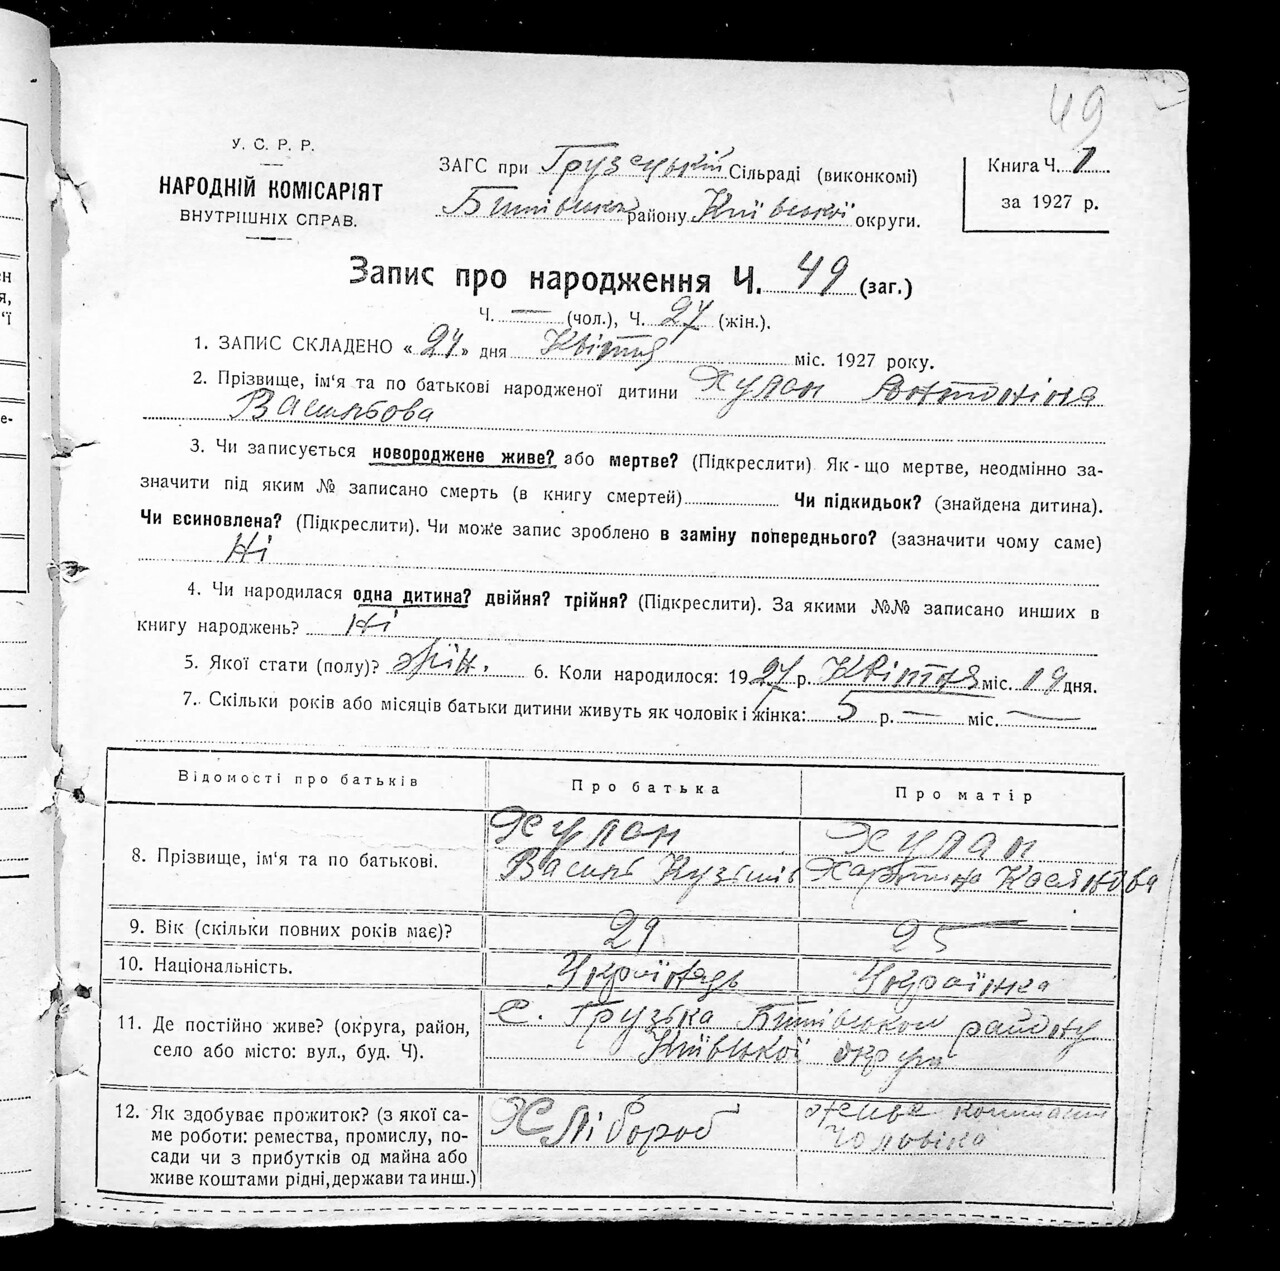 49
У. С. Р. Р.
НАРОДНІЙ КОМІСАРІЯТ
ВНУТРІШНІХ СПРАВ.
ЗАГС при Грузецькій Сільраді (виконкомі)
району Київської округи.
Книга Ч. 1
за 1927 р.
Запис про народження Ч. 49 (заг.)
Ч. — (чол.), Ч. 27 (жін.).
1. ЗАПИС СКЛАДЕНО « 24 » дня Квітня міс. 1927 року.
2. Прізвище, ім'я та по батькові народженої дитини Хулап Антоніна
Васильова
3. Чи записується новороджене живе? або мертве? (Підкреслити) Як-що мертве, неодмінно за-
значити під яким № записано смерть (в книгу смертей) Чи підкидьок? (знайдена дитина).
Чи всиновлена? (Підкреслити). Чи може запис зроблено в заміну попереднього? (зазначити чому саме)
Ні
4. Чи народилася одна дитина? двійня? трійня? (Підкреслити). За якими №№ записано инших в
книгу народжень? Ні
5. Якої стати (полу)? жін. 6. Коли народилося: 1927 р. Квітня міс. 19 дня.
7. Скільки років або місяців батьки дитини живуть як чоловік і жінка: 5 р. — міс. —
Відомості про батьків Про батька Про матір
8. Прізвище, ім'я та по батькові.
Хулап
Василь Кузьмів
Хулап
Харитина Касянова
9. Вік (скільки повних років має)? 29 25
10. Національність. Українець Українка
11. Де постійно живе? (округа, район,
село або місто: вул., буд. Ч).
С. Грузька району
Київської округи
12. Як здобуває прожиток? (з якої са-
ме роботи: ремества, промислу, по-
сади чи з прибутків од майна або
живе коштами рідні, держави та инш.)
Хлібороб
живе коштами
чоловіка